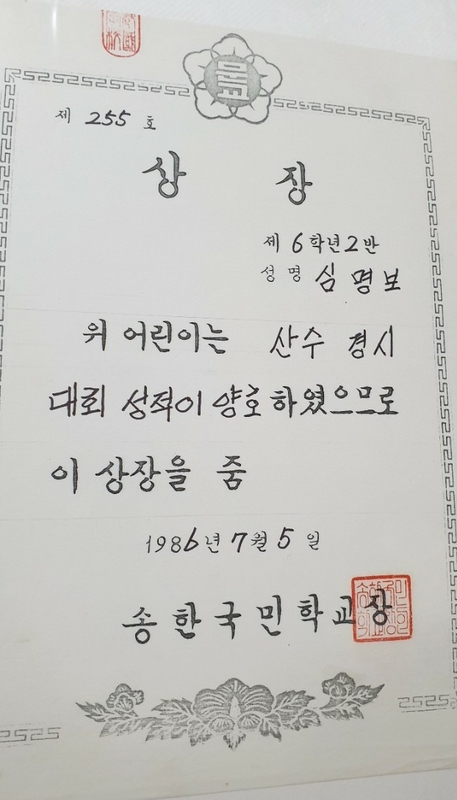 제 255 호
상 장
제 6 학년 2 반
성명 심명보
위 어린이는 산수 경시
대회 성적이 양호하였으므로
이 상장을 줌
1986년 7월 5일
송한국민학교장